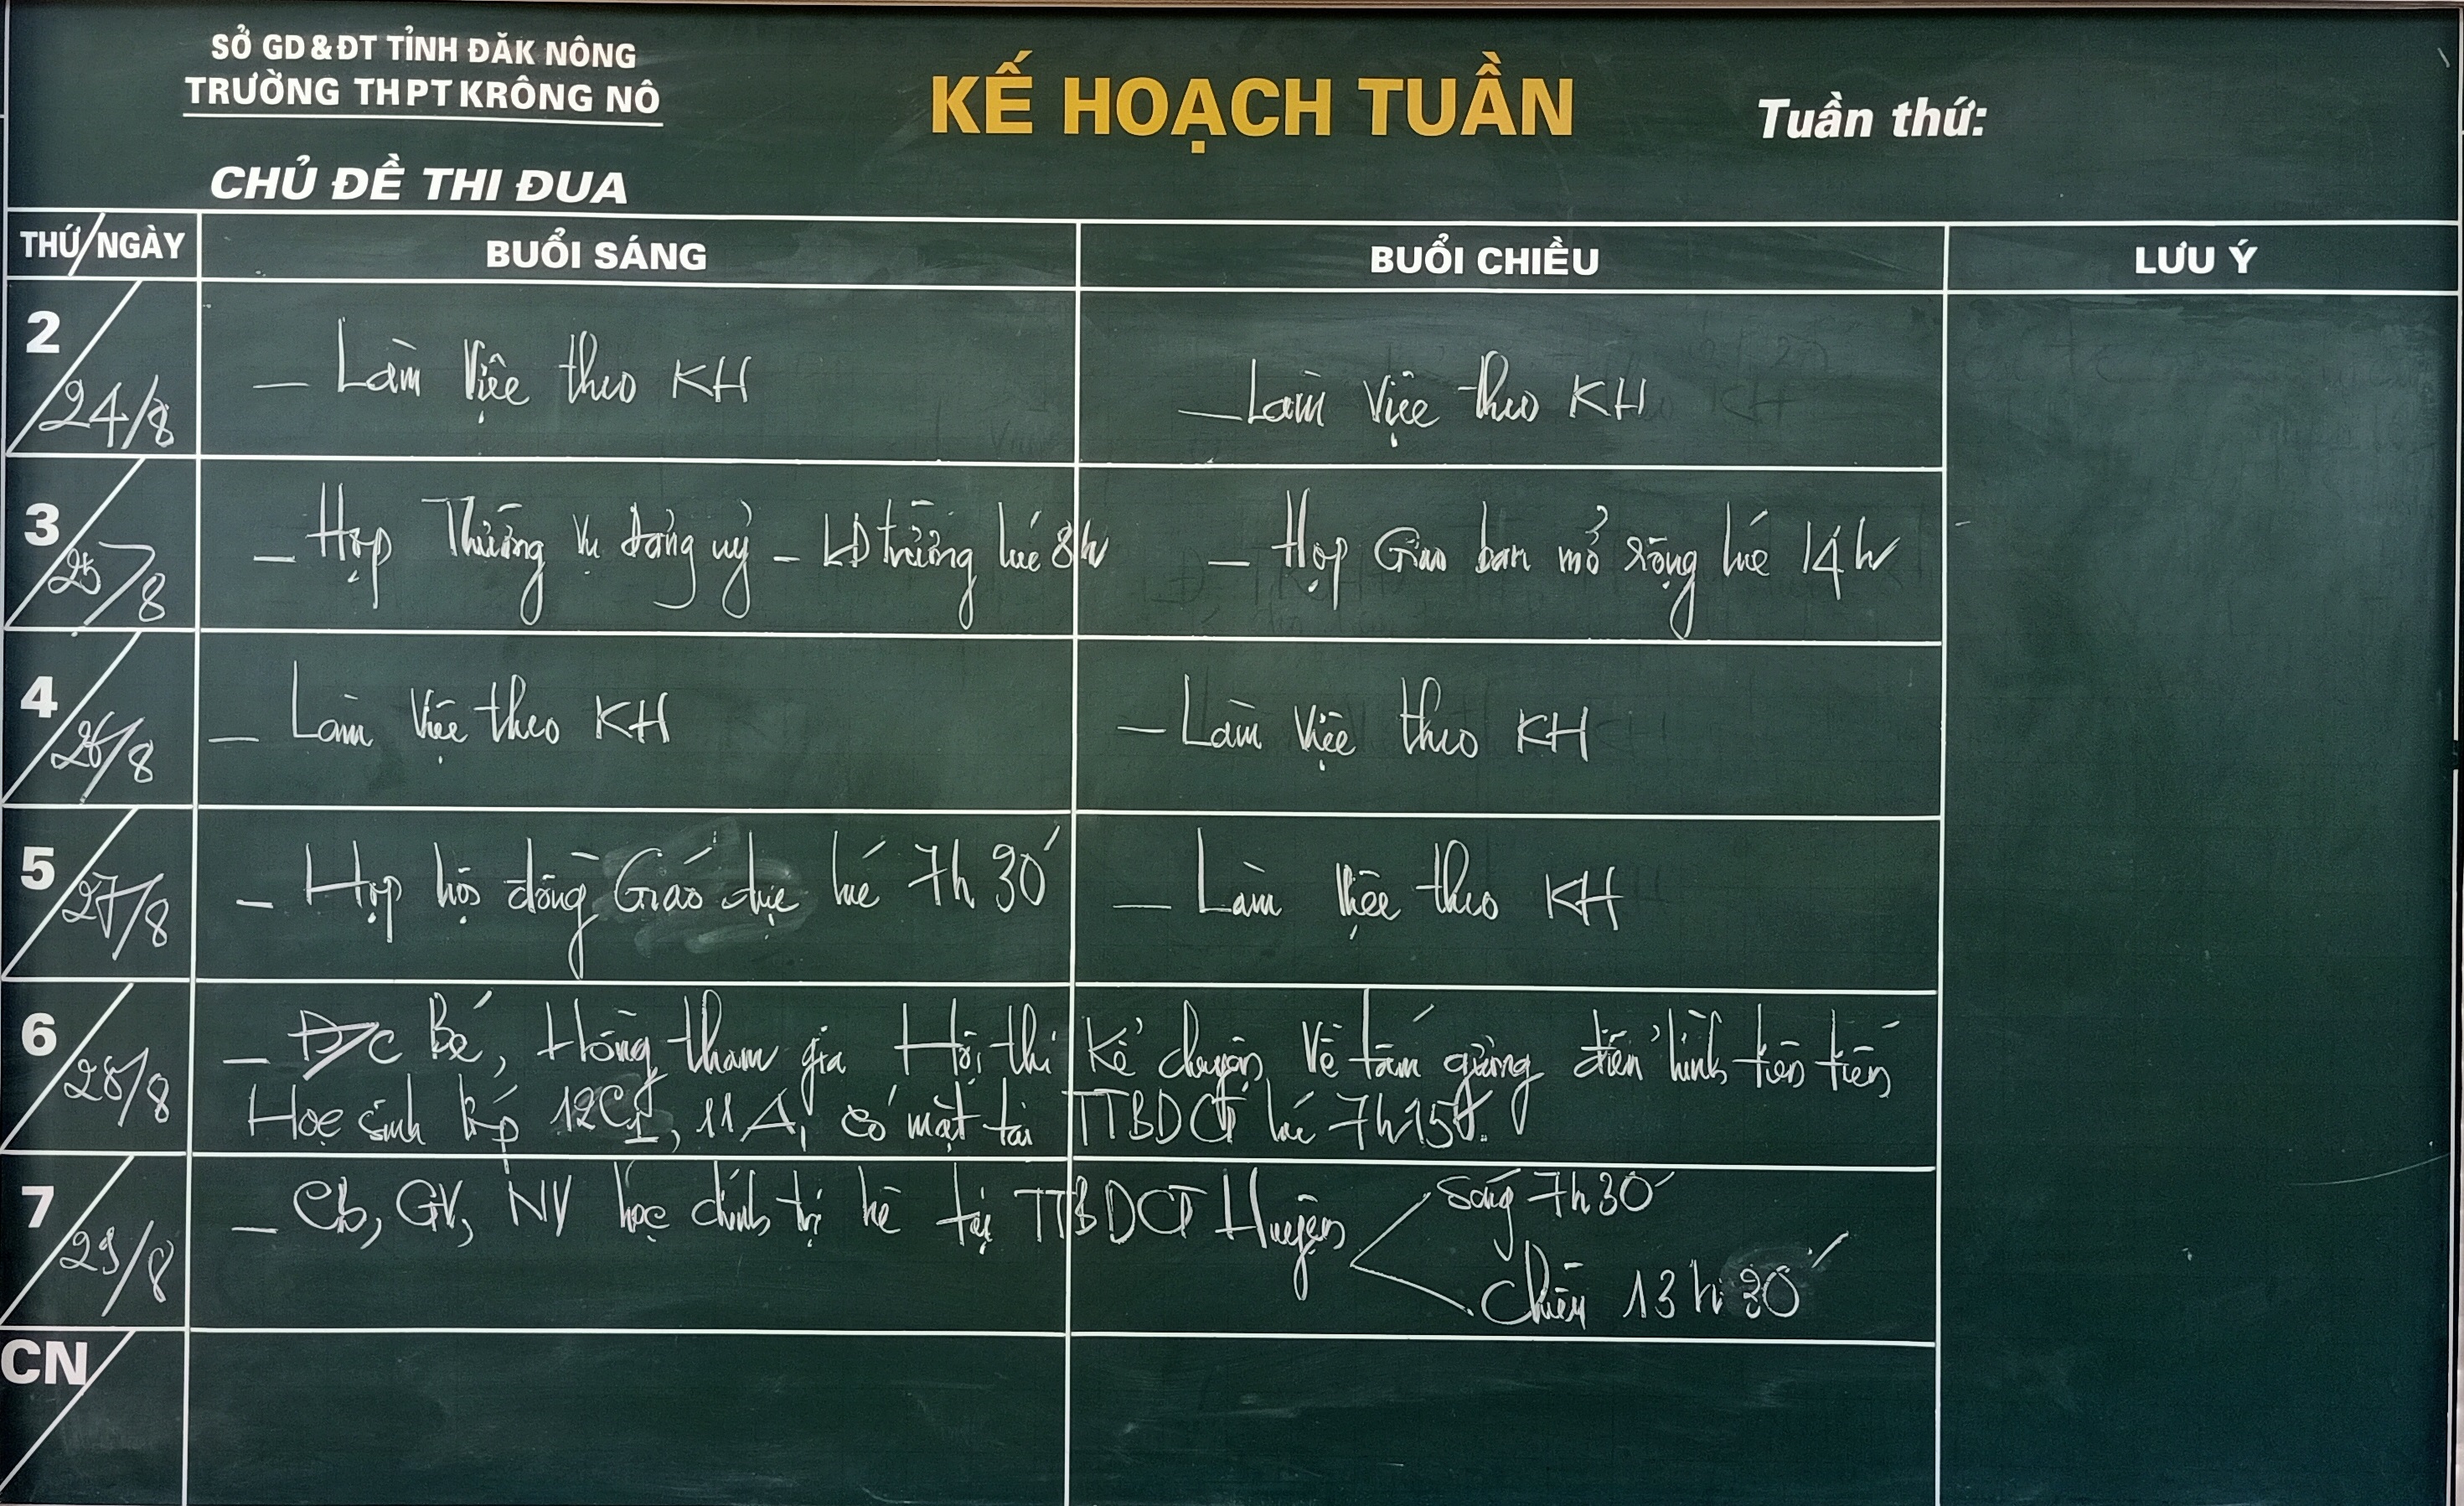 SỞ GD&ĐT TỈNH ĐĂK NÔNG
TRƯỜNG THPT KRÔNG NÔ
KẾ HOẠCH TUẦN
Tuần thứ:
CHỦ ĐỀ THI ĐUA
THỨ/NGÀY BUỔI SÁNG BUỔI CHIỀU LƯU Ý
2 24/8 - Làm việc theo KH - Làm việc theo KH
3 25/8 - Họp Thường vụ đảng uỷ - LĐ trường lúc 8h - Họp Giao ban mở rộng lúc 14h
4 26/8 - Làm việc theo KH - Làm việc theo KH
5 27/8 - Họp hội đồng Giáo dục lúc 7h30' - Làm việc theo KH
6 28/8 - Đ/c Bé, Hồng tham gia Hội thi Kể chuyện về tấm gương điển hình tiên tiến
Học sinh lớp 12C1, 11A1 có mặt tại TTBDCT lúc 7h15'.
7 29/8 - Cb, GV, NV học chính trị hè tại TTBDCT Huyện
Sáng 7h30'
Chiều 13h30'
CN